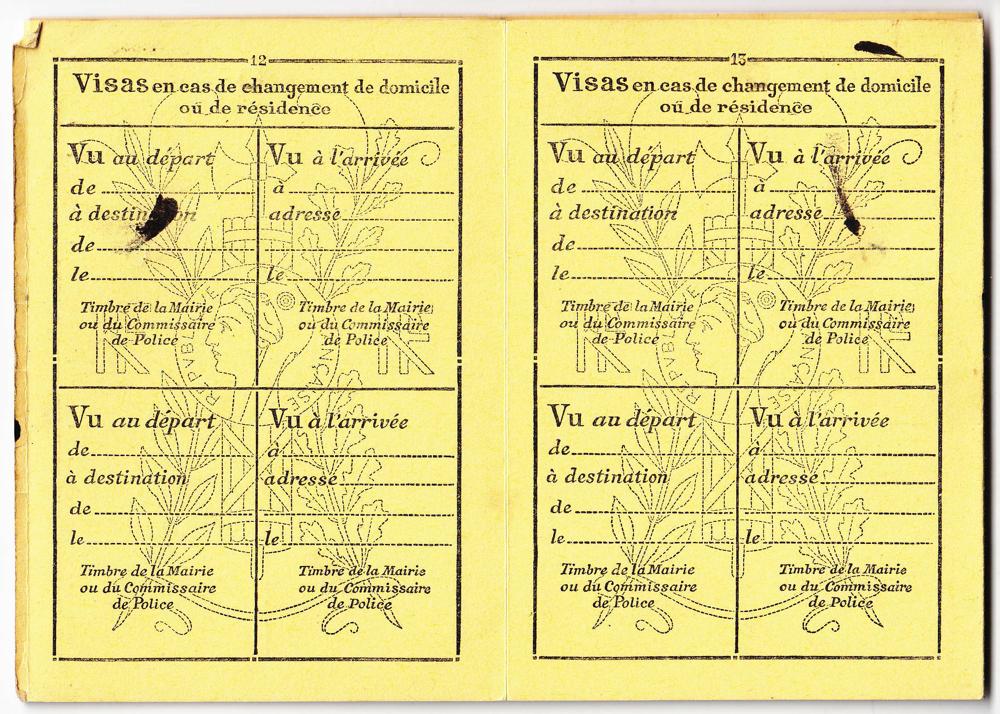 12
Visas en cas de changement de domicile
ou de résidence
Vu au départ
de
à destination
de
le
Timbre de la Mairie
ou du Commissaire
de Police
Vu à l'arrivée
à
adresse
le
Timbre de la Mairie
ou du Commissaire
de Police
Vu au départ
de
à destination
de
le
Timbre de la Mairie
ou du Commissaire
de Police
Vu à l'arrivée
à
adresse
le
Timbre de la Mairie
ou du Commissaire
de Police
RF
RF
REPVBLIQVE FRANÇAISE
13
Visas en cas de changement de domicile
ou de résidence
Vu au départ
de
à destination
de
le
Timbre de la Mairie
ou du Commissaire
de Police
Vu à l'arrivée
à
adresse
le
Timbre de la Mairie
ou du Commissaire
de Police
Vu au départ
de
à destination
de
le
Timbre de la Mairie
ou du Commissaire
de Police
Vu à l'arrivée
à
adresse
le
Timbre de la Mairie
ou du Commissaire
de Police
RF
RF
REPVBLIQVE FRANÇAISE